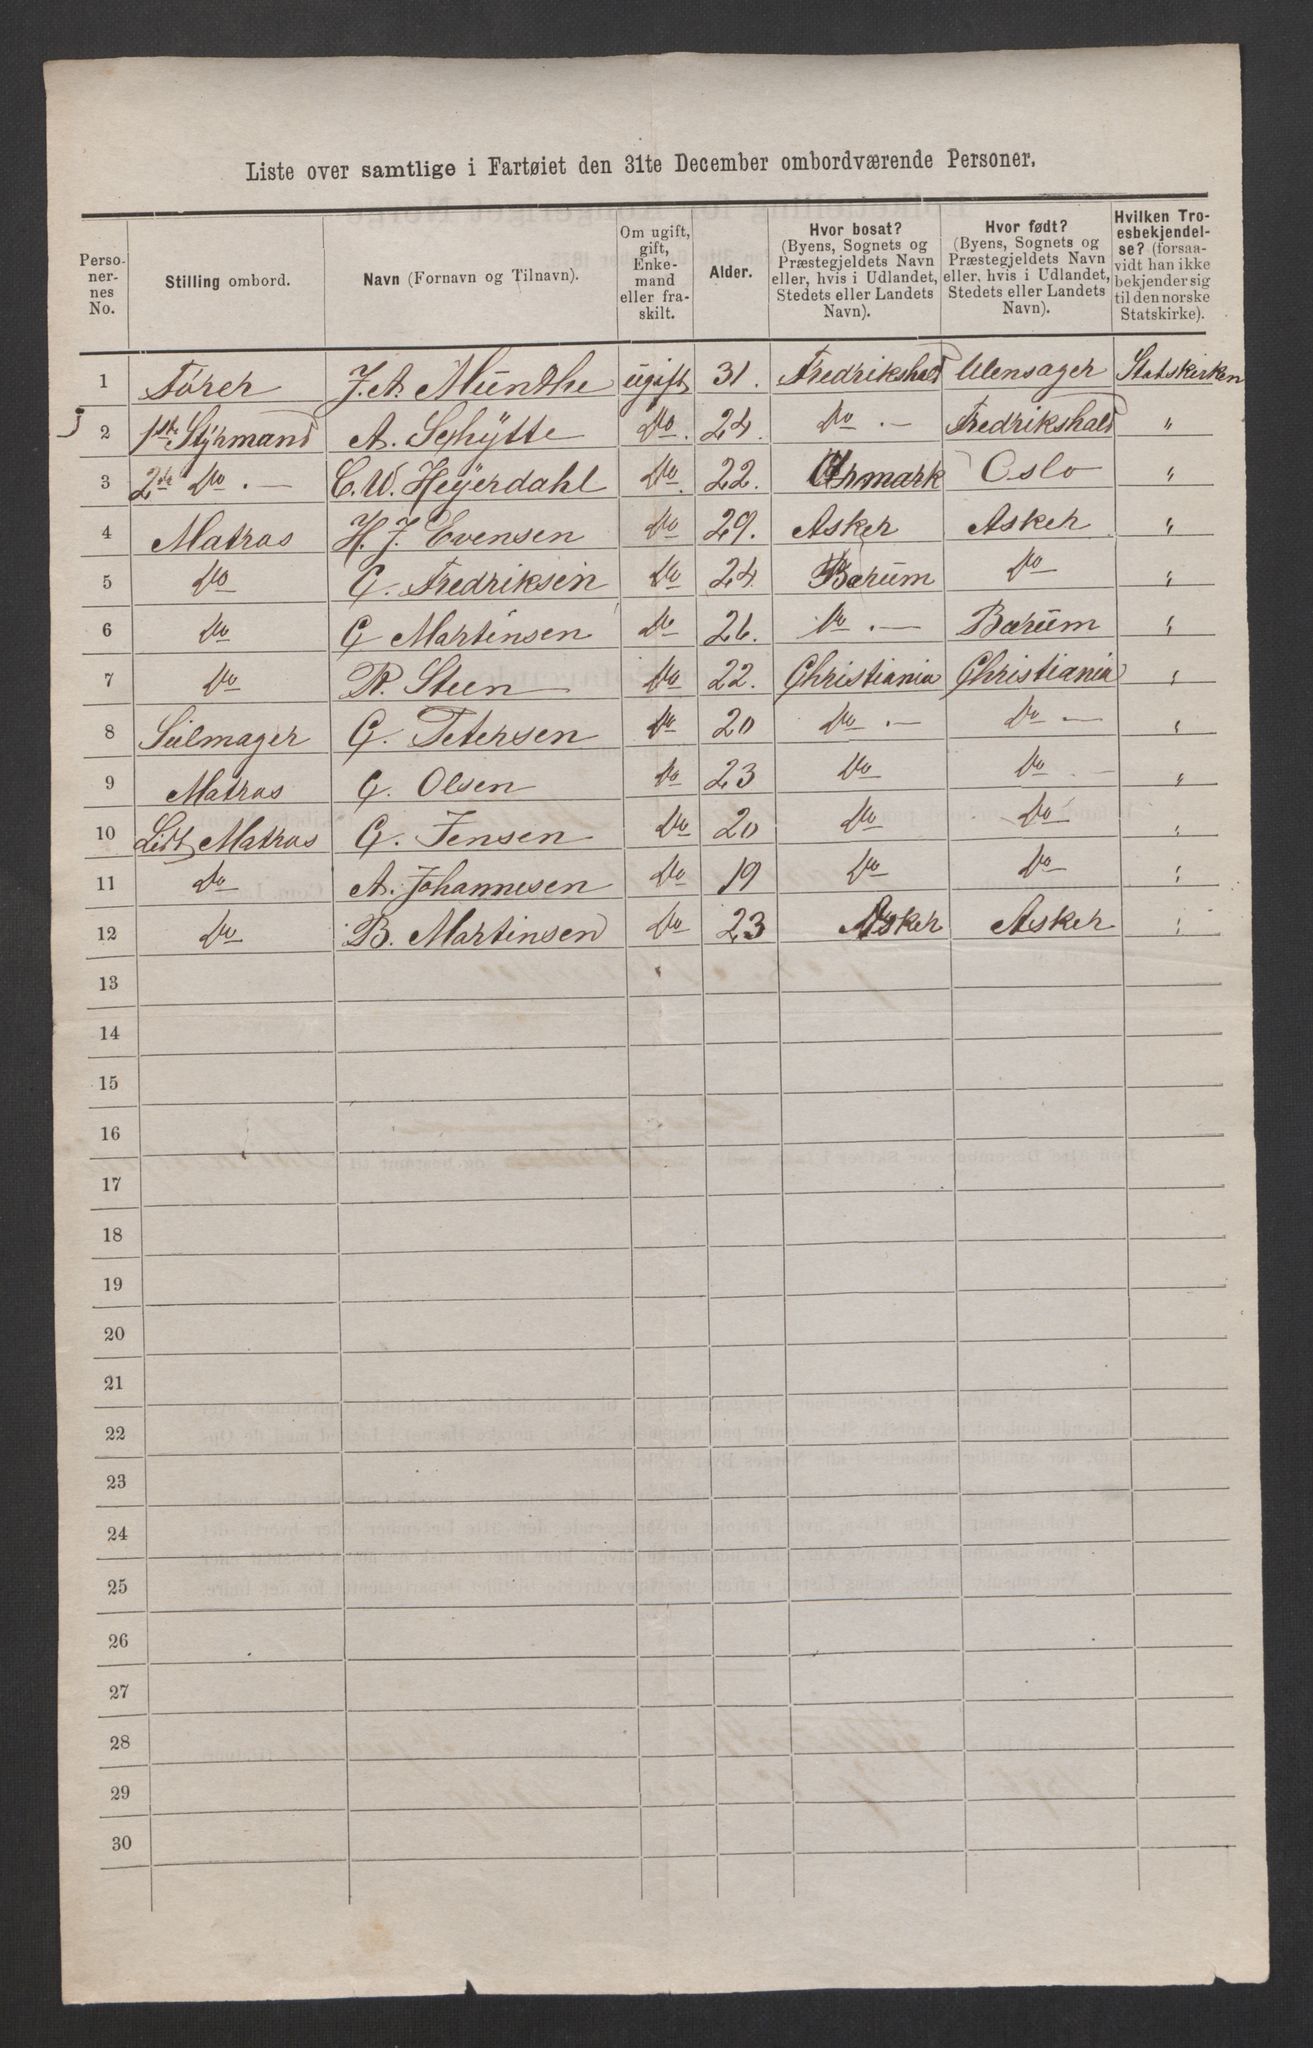 Liste over samtlige i Fartøiet den 31te December ombordværende Personer.
Personernes No. | Stilling ombord. | Navn (Fornavn og Tilnavn). | Om ugift, gift, Enkemand eller fraskilt. | Alder. | Hvor bosat? (Byens, Sognets og Præstegjeldets Navn eller, hvis i Udlandet, Stedets eller Landets Navn). | Hvor født? (Byens, Sognets og Præstegjeldets Navn eller, hvis i Udlandet, Stedets eller Landets Navn). | Hvilken Troesbekjendelse? (forsaavidt han ikke bekjender sig til den norske Statskirke).
1 | Fører | J. A. Munthe | ugift | 31. | Fredrikshald | Ulensager | Statskirken
2 | 1ste Styrmand | A. Schytte | do. | 24. | do — | Fredrikshald | "
3 | 2de do — | C. W. Heyerdahl | do | 22. | Urmark | Oslo | "
4 | Matros | H. J. Evensen | do | 29. | Asker | Asker | "
5 | do | C. Fredriksen | do | 24. | Bærum | do | "
6 | do | C Martinsen | do | 26. | do — | Bærum | "
7 | do | R. Steen | do | 22. | Christiania | Christiania | "
8 | Seilmager | C. Petersen | do | 20 | do — | do — | "
9 | Matros | C. Olsen | do | 23 | do | do — | "
10 | Ledt Matros | C. Jensen | do | 20 | do | do | "
11 | do | A. Johannesen | do | 19 | do | do | "
12 | do | B. Martinsen | do | 23 | Asker | Asker | "
13
14
15
16
17
18
19
20
21
22
23
24
25
26
27
28
29
30